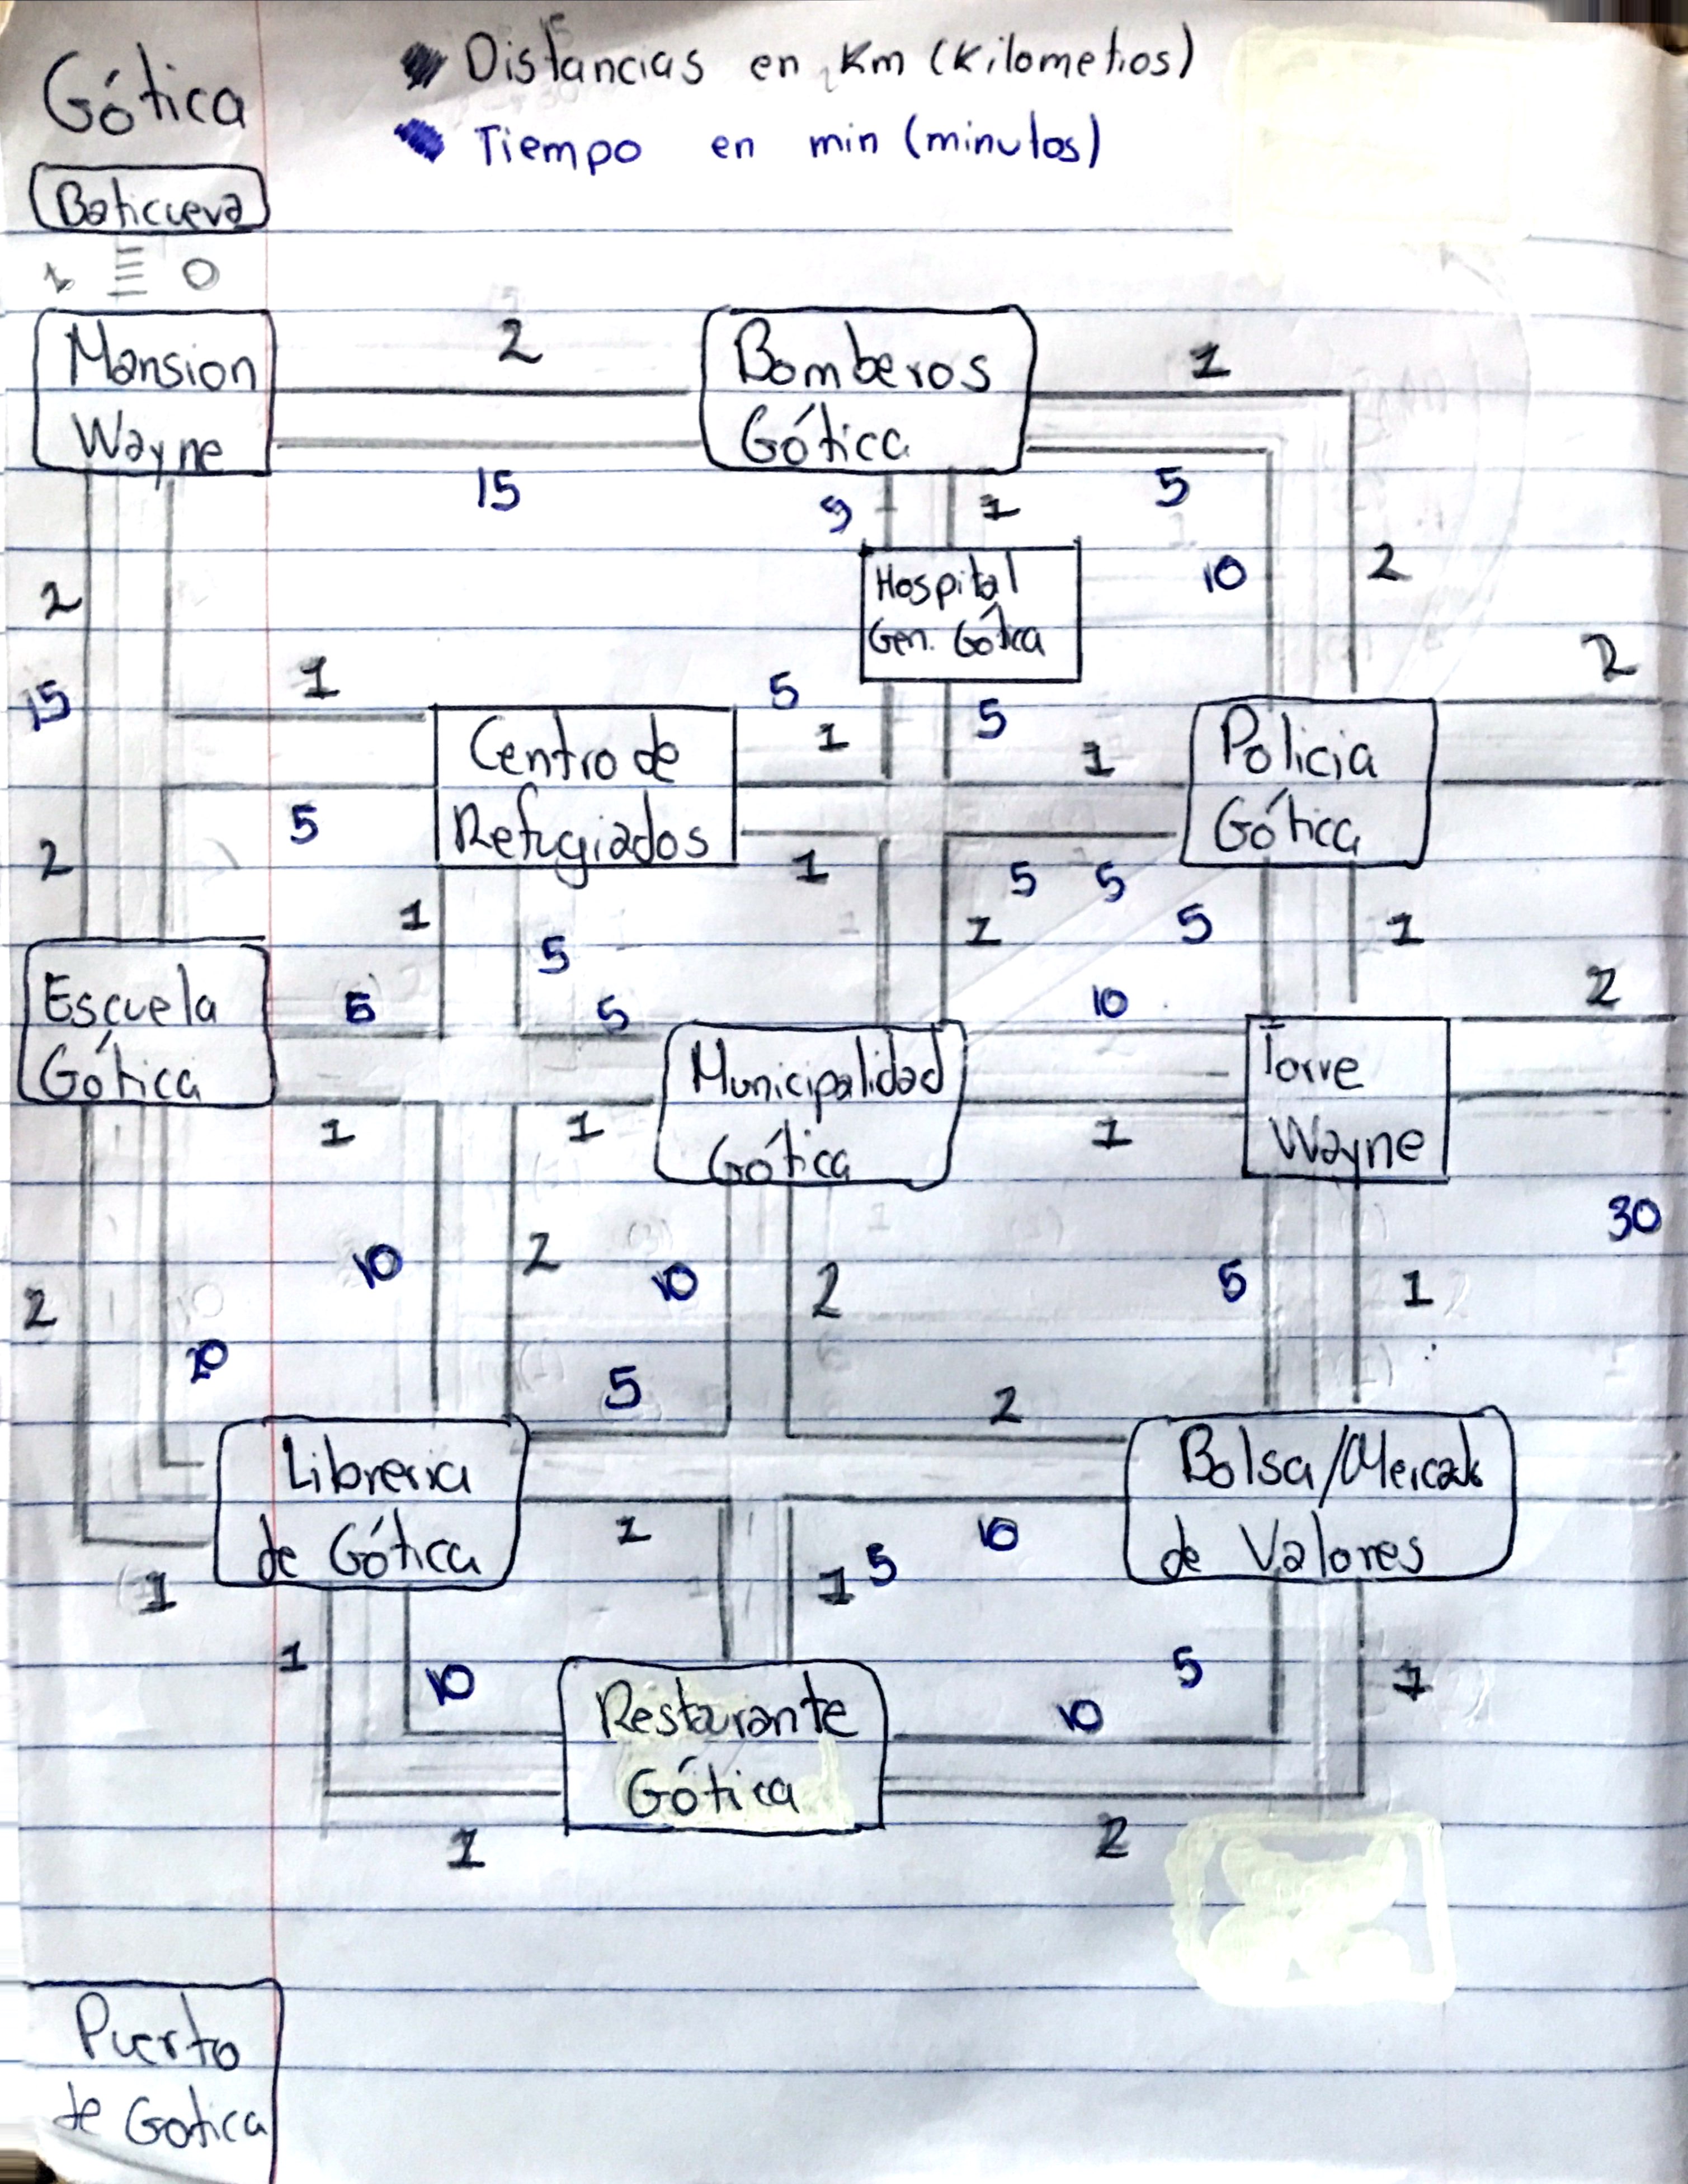 Gótica
Distancias en Km (Kilometros)
Tiempo en min (minutos)
Baticueva
1 0
Mansion
Wayne
2
15
Bomberos
Gótica
1
5
9 1
10 2
Hospital
Gen. Gótica
2
15
1
5
5
1
5
1
2
Centro de
Refugiados
Policia
Gótica
2
1
5 5
1
5
1
5
1
Escuela
Gótica
5
5
10
2
1
1
1
Municipalidad
Gótica
Torre
Wayne
30
2
10
2
10
2
5
1
20
5
2
Libreria
de Gótica
Bolsa/Mercado
de Valores
1
10
1
1 5
1
10
5
1
Restaurante
Gótica
10
1
2
Puerto
de Gotica